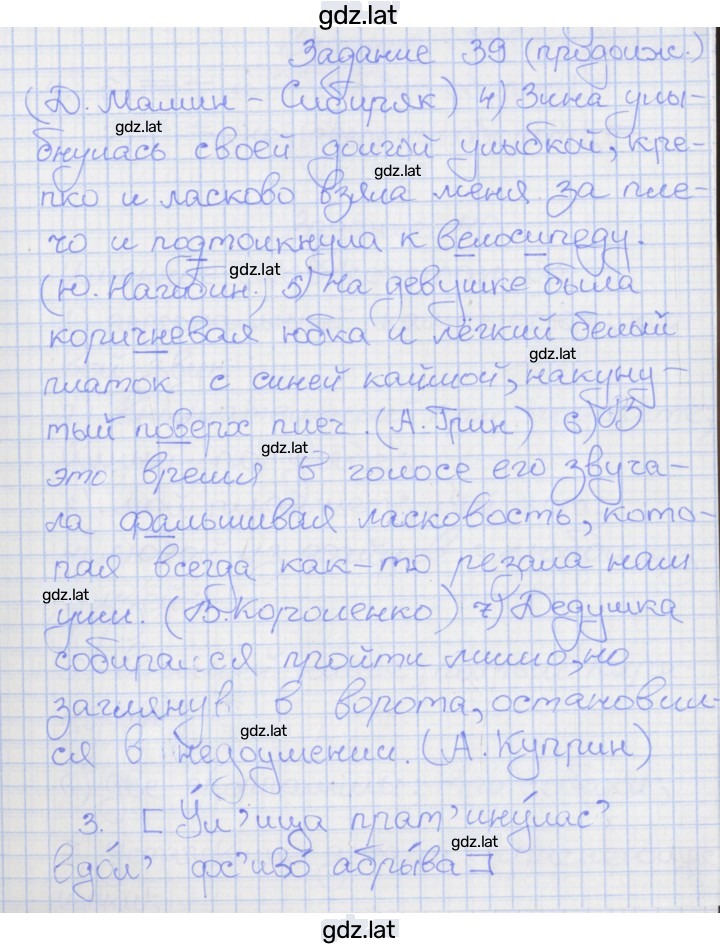 gdz.lat
Задание 39 (продолж.)
(Д. Мамин - Сибиряк) 4) Зина улы-
gdz.lat
бнулась своей долгой улыбкой, кре-
gdz.lat
пко и ласково взяла меня за пле-
чо и подтолкнула к велосипеду.
gdz.lat
(Ю. Нагибин.) 5) На девушке была
коричневая юбка и лёгкий белый
gdz.lat
платок с синей каймой, накину-
тый поверх плеч. (А. Грин) 6) В
gdz.lat
это время в голосе его звуча-
ла фальшивая ласковость, кото-
рая всегда как-то резала нам
gdz.lat
уши. (В. Короленко) 7) Дедушка
собирался пройти мимо, но
заглянув в ворота, остановил-
gdz.lat
ся в недоумении. (А. Куприн)
3. [ У́л’ица прат’ину́лас’
gdz.lat
вдо́л’ фс’иво́ абры́ва ]
gdz.lat